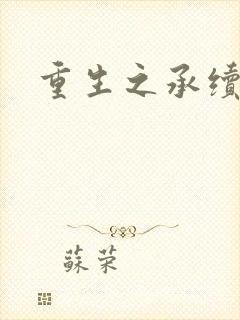 重生之承續
蘇榮